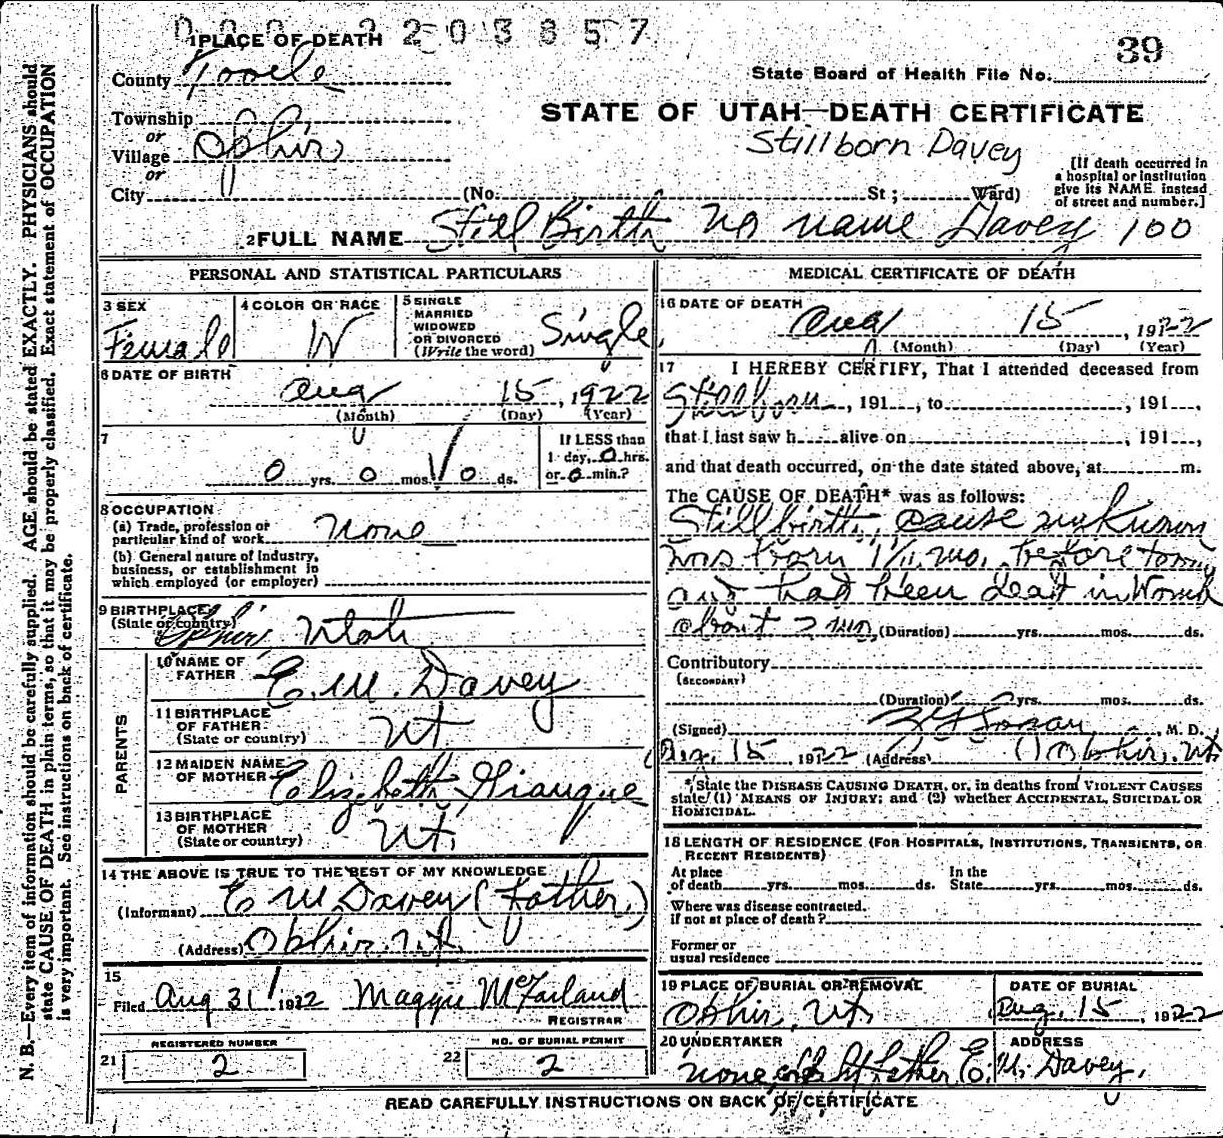 2203657
39
1 PLACE OF DEATH
County Tooele
State Board of Health File No.
STATE OF UTAH—DEATH CERTIFICATE
Township
or
Village Ophir
or
City
Stillborn Davey
(No. St ; Ward)
[If death occurred in
a hospital or institution
give its NAME instead
of street and number.]
2 FULL NAME Still Birth no name Davey 100
PERSONAL AND STATISTICAL PARTICULARS
3 SEX
Female
4 COLOR OR RACE
W
5 SINGLE
MARRIED
WIDOWED
OR DIVORCED
(Write the word) Single
6 DATE OF BIRTH
Aug 15, 1922
(Month) (Day) (Year)
7
0 yrs. 0 mos. 0 ds.
If LESS than
1 day, 0 hrs.
or 0 min.?
8 OCCUPATION
(a) Trade, profession or
particular kind of work none
(b) General nature of Industry,
business, or establishment in
which employed (or employer)
9 BIRTHPLACE
(State or country) Ophir, Utah
PARENTS
10 NAME OF
FATHER E. M. Davey
11 BIRTHPLACE
OF FATHER
(State or country) Ut
12 MAIDEN NAME
OF MOTHER Elizabeth Giauque
13 BIRTHPLACE
OF MOTHER
(State or country) Ut.
14 THE ABOVE IS TRUE TO THE BEST OF MY KNOWLEDGE
(Informant) E M Davey (Father)
(Address) Ophir, Ut.
15
Filed Aug 31 1922 Maggie McFarland
REGISTRAR
REGISTERED NUMBER
21 2
NO. OF BURIAL PERMIT
22 2
MEDICAL CERTIFICATE OF DEATH
16 DATE OF DEATH
Aug 15, 1922
(Month) (Day) (Year)
17 I HEREBY CERTIFY, That I attended deceased from
Stillborn, 191, to , 191,
that I last saw h alive on , 191,
and that death occurred, on the date stated above, at m.
The CAUSE OF DEATH* was as follows:
Still birth, cause unknown
was born mo. before term
and had been dead in Womb
about 2 (Duration) yrs. mos. ds.
Contributory
(SECONDARY)
(Duration) yrs. mos. ds.
(Signed) M. D.
15 1922 (Address) Ophir, Ut
*State the DISEASE CAUSING DEATH, or, in deaths from VIOLENT CAUSES
state (1) MEANS OF INJURY; and (2) whether ACCIDENTAL, SUICIDAL OR
HOMICIDAL.
18 LENGTH OF RESIDENCE (FOR HOSPITALS, INSTITUTIONS, TRANSIENTS, OR
RECENT RESIDENTS)
At place
of death yrs. mos. ds.
In the
State yrs. mos. ds.
Where was disease contracted.
if not at place of death?
Former or
usual residence
19 PLACE OF BURIAL OR REMOVAL
Ophir, Ut.
DATE OF BURIAL
Aug. 15, 1922
20 UNDERTAKER
none father E.
ADDRESS
M. Davey.
READ CAREFULLY INSTRUCTIONS ON BACK OF CERTIFICATE
N. B.—Every item of information should be carefully supplied. AGE should be stated EXACTLY. PHYSICIANS should
state CAUSE OF DEATH in plain terms, so that it may be properly classified. Exact statement of OCCUPATION
is very important. See instructions on back of certificate.